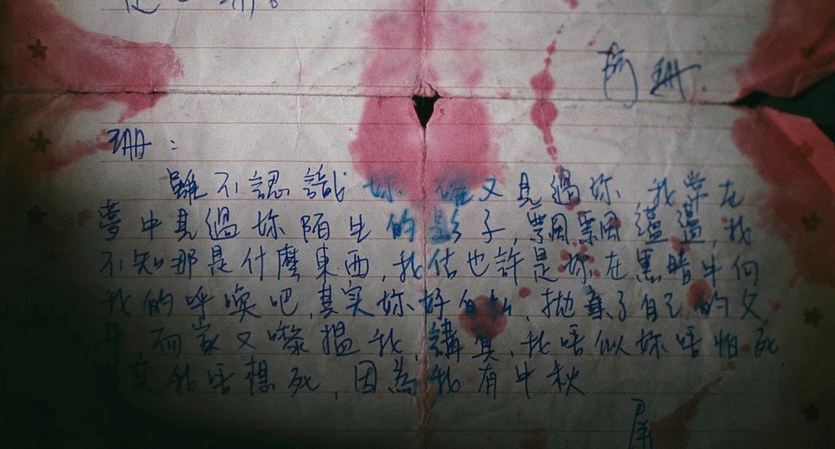 阿珊
珊：
雖不認識妳 確又見過妳 我常在
夢中見過妳陌生的影子，飄飄盪盪，我
不知那是什麼東西，我估也許是妳在黑暗中向
我的呼喚吧，其實妳好自私，拋棄了自己的父
而家又嚟搵我，講真，我唔似妳唔怕死
我唔想死，因為我有中秋
屏